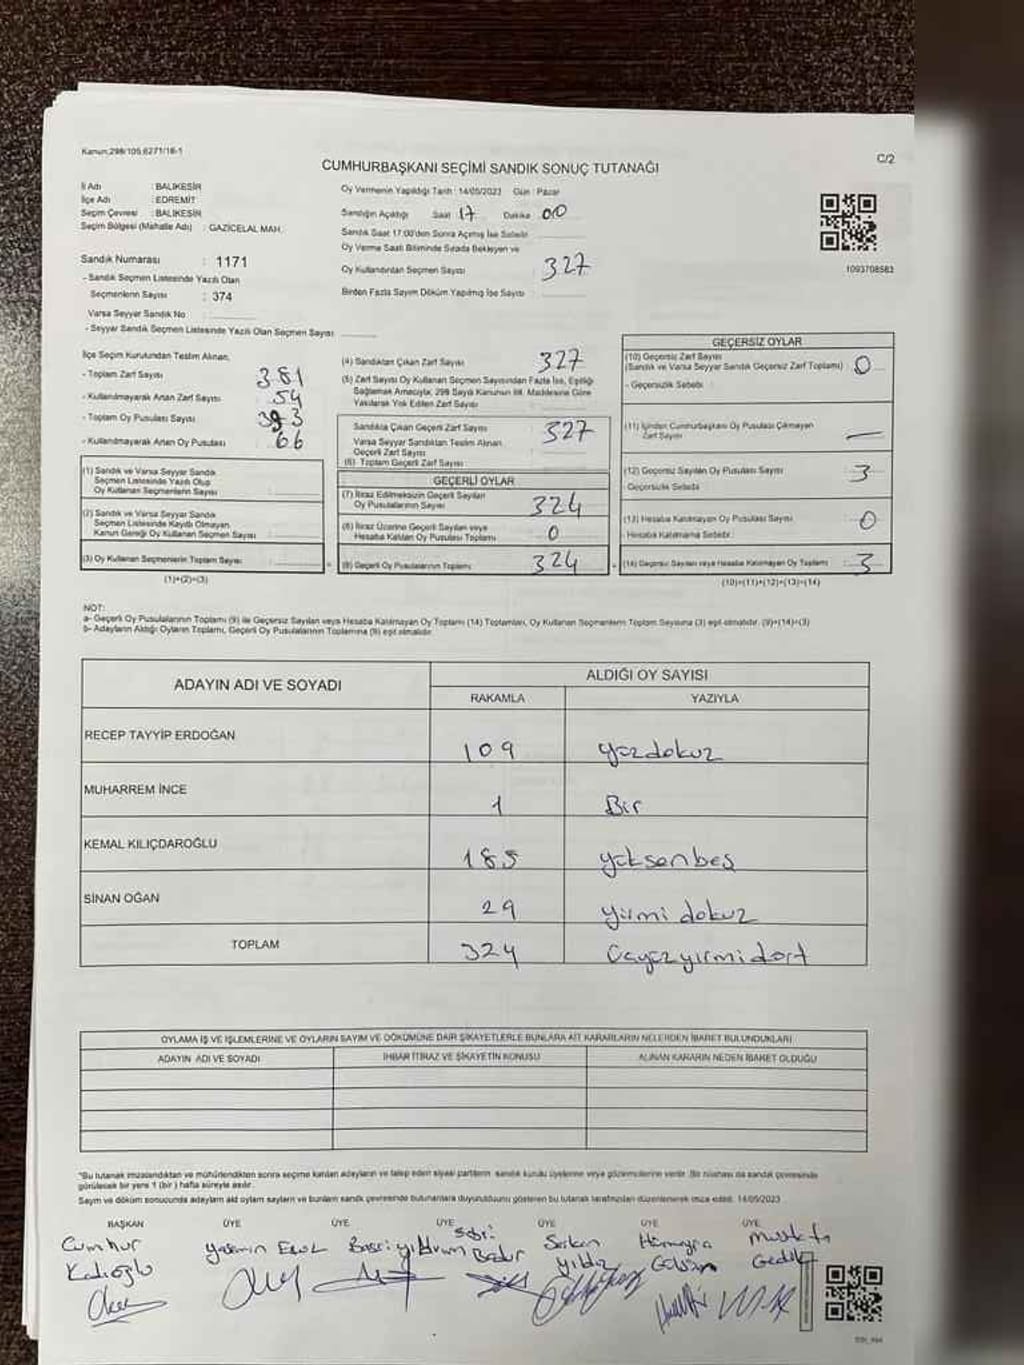 Kanun:298/105,6271/16-1
C/2
CUMHURBAŞKANI SEÇİMİ SANDIK SONUÇ TUTANAĞI
İl Adı : BALIKESİR
İlçe Adı : EDREMİT
Seçim Çevresi : BALIKESİR
Seçim Bölgesi (Mahalle Adı) : GAZİCELAL MAH.
Oy Vermenin Yapıldığı Tarih : 14/05/2023 Gün : Pazar
Sandığın Açıldığı Saat 17 Dakika 00
Sandık Saat 17:00'den Sonra Açılmış İse Sebebi
Oy Verme Saati Bitiminde Sırada Bekleyen ve
Oy Kullandırılan Seçmen Sayısı 327
Birden Fazla Sayım Döküm Yapılmış İse Sayısı :
1093708583
Sandık Numarası : 1171
- Sandık Seçmen Listesinde Yazılı Olan
Seçmenlerin Sayısı : 374
Varsa Seyyar Sandık No :
- Seyyar Sandık Seçmen Listesinde Yazılı Olan Seçmen Sayısı
İlçe Seçim Kurulundan Teslim Alınan;
- Toplam Zarf Sayısı 381
- Kullanılmayarak Artan Zarf Sayısı : 54
- Toplam Oy Pusulası Sayısı 393
- Kullanılmayarak Artan Oy Pusulası : 66
(1) Sandık ve Varsa Seyyar Sandık
Seçmen Listesinde Yazılı Olup
Oy Kullanan Seçmenlerin Sayısı :
(2) Sandık ve Varsa Seyyar Sandık
Seçmen Listesinde Kayıtlı Olmayan
Kanun Gereği Oy Kullanan Seçmen Sayısı :
(3) Oy Kullanan Seçmenlerin Toplam Sayısı :
(1)+(2)=(3)
(4) Sandıktan Çıkan Zarf Sayısı 327
(5) Zarf Sayısı Oy Kullanan Seçmen Sayısından Fazla İse, Eşitliği
Sağlamak Amacıyla, 298 Sayılı Kanunun 98. Maddesine Göre
Yakılarak Yok Edilen Zarf Sayısı
Sandıkta Çıkan Geçerli Zarf Sayısı 327
Varsa Seyyar Sandıktan Teslim Alınan
Geçerli Zarf Sayısı
(6) Toplam Geçerli Zarf Sayısı
GEÇERLİ OYLAR
(7) İtiraz Edilmeksizin Geçerli Sayılan
Oy Pusulalarının Sayısı 324
(8) İtiraz Üzerine Geçerli Sayılan veya
Hesaba Katılan Oy Pusulası Toplamı 0
(9) Geçerli Oy Pusulalarının Toplamı 324
GEÇERSİZ OYLAR
(10) Geçersiz Zarf Sayısı
(Sandık ve Varsa Seyyar Sandık Geçersiz Zarf Toplamı) 0
- Geçersizlik Sebebi
(11) İçinden Cumhurbaşkanı Oy Pusulası Çıkmayan
Zarf Sayısı —
(12) Geçersiz Sayılan Oy Pusulası Sayısı 3
Geçersizlik Sebebi
(13) Hesaba Katılmayan Oy Pusulası Sayısı 0
- Hesaba Katılmama Sebebi :
(14) Geçersiz Sayılan veya Hesaba Katılmayan Oy Toplamı : 3
(10)+(11)+(12)+(13)=(14)
NOT:
a- Geçerli Oy Pusulalarının Toplamı (9) ile Geçersiz Sayılan veya Hesaba Katılmayan Oy Toplamı (14) Toplamları, Oy Kullanan Seçmenlerin Toplam Sayısına (3) eşit olmalıdır. (9)+(14)=(3)
b- Adayların Aldığı Oyların Toplamı, Geçerli Oy Pusulalarının Toplamına (9) eşit olmalıdır.
ADAYIN ADI VE SOYADI
ALDIĞI OY SAYISI
RAKAMLA YAZIYLA
RECEP TAYYİP ERDOĞAN 109 yüzdokuz
MUHARREM İNCE 1 Bir
KEMAL KILIÇDAROĞLU 185 yüksenbeş
SİNAN OĞAN 29 yirmi dokuz
TOPLAM 324 üçyüzyirmidört
OYLAMA İŞ VE İŞLEMLERİNE VE OYLARIN SAYIM VE DÖKÜMÜNE DAİR ŞİKAYETLERLE BUNLARA AİT KARARLARIN NELERDEN İBARET BULUNDUKLARI
ADAYIN ADI VE SOYADI İHBAR İTİRAZ VE ŞİKAYETİN KONUSU ALINAN KARARIN NEDEN İBARET OLDUĞU
"Bu tutanak imzalandıktan ve mühürlendikten sonra seçime katılan adayların ve talep eden siyasi partilerin sandık kurulu üyelerine veya gözlemcilerine verilir. Bir nüshası da sandık çevresinde
görülecek bir yere 1 (bir) hafta süreyle asılır.
Sayım ve döküm sonucunda adayların aldığı oyların sayıları ve bunların sandık çevresinde bulunanlara duyurulduğunu gösteren bu tutanak tarafımızdan düzenlenerek imza edildi. 14/05/2023
BAŞKAN ÜYE ÜYE ÜYE ÜYE ÜYE ÜYE
Cumhur Kadıoğlu
Yasemin Erol
Basri yıldırım
Sabri Badur
Serkan yıldız
Hümeyra
Mustafa Gedik